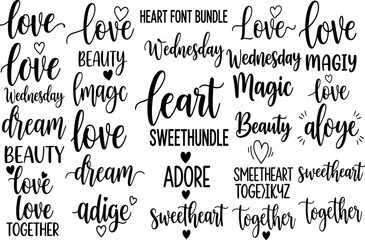 love
love
Wednesday
dream
BEAUTY
love
love
TOGETHER
Love
BEAUTY
lmagc
love
dream
adige
HEART FONT BUNDLE
Wednesday
leart
SWEETHUNDLE
ADORE
sweetheart
Love
Wednesday
Magic
Beauty
SMEETHEART
together
love
MAGIY
love
aloye
sweetheart
together